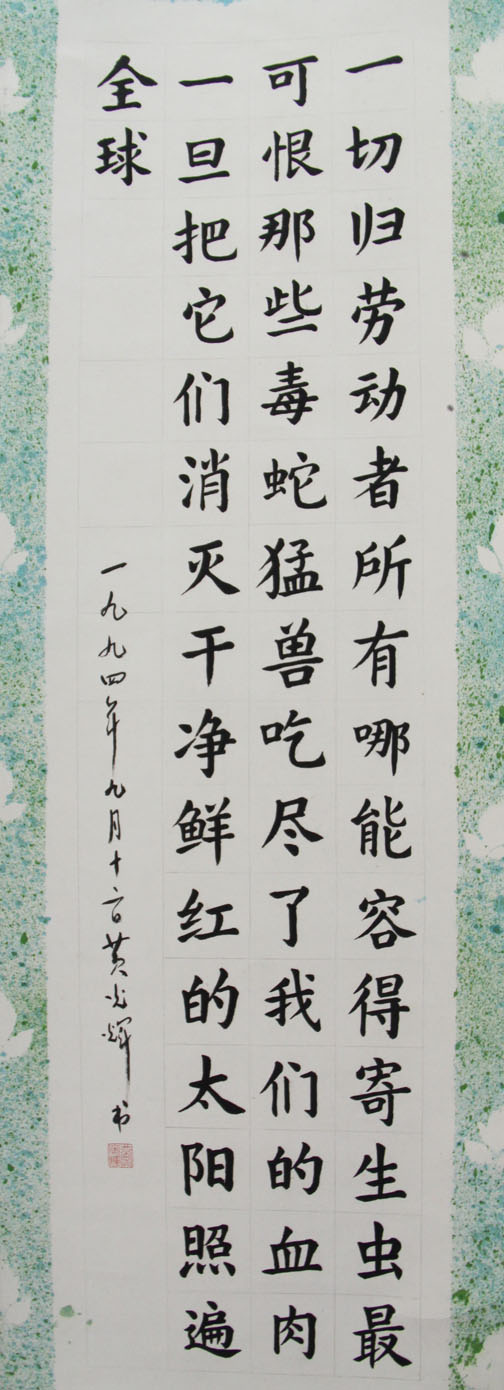 一切归劳动者所有哪能容得寄生虫最
可恨那些毒蛇猛兽吃尽了我们的血肉
一旦把它们消灭干净鲜红的太阳照遍
全球
一九九四年九月十六日黄光辉书